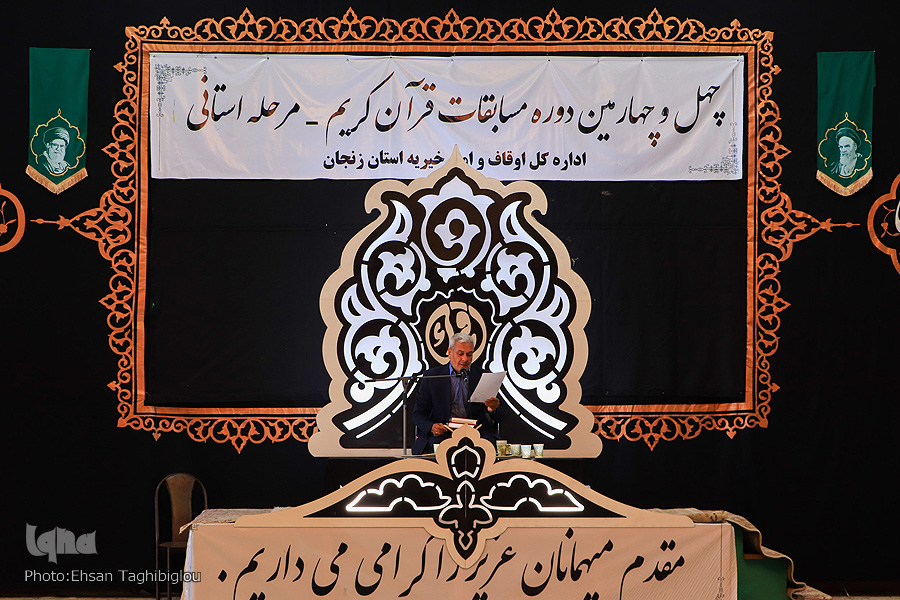 چهل و چهارمین دوره مسابقات قرآن کریم - مرحله استانی
اداره کل اوقاف و خیریه استان زنجان
مقدم میهمانان عزیز را گرامی می داریم .
iqna
Photo:Ehsan Taghibiglou